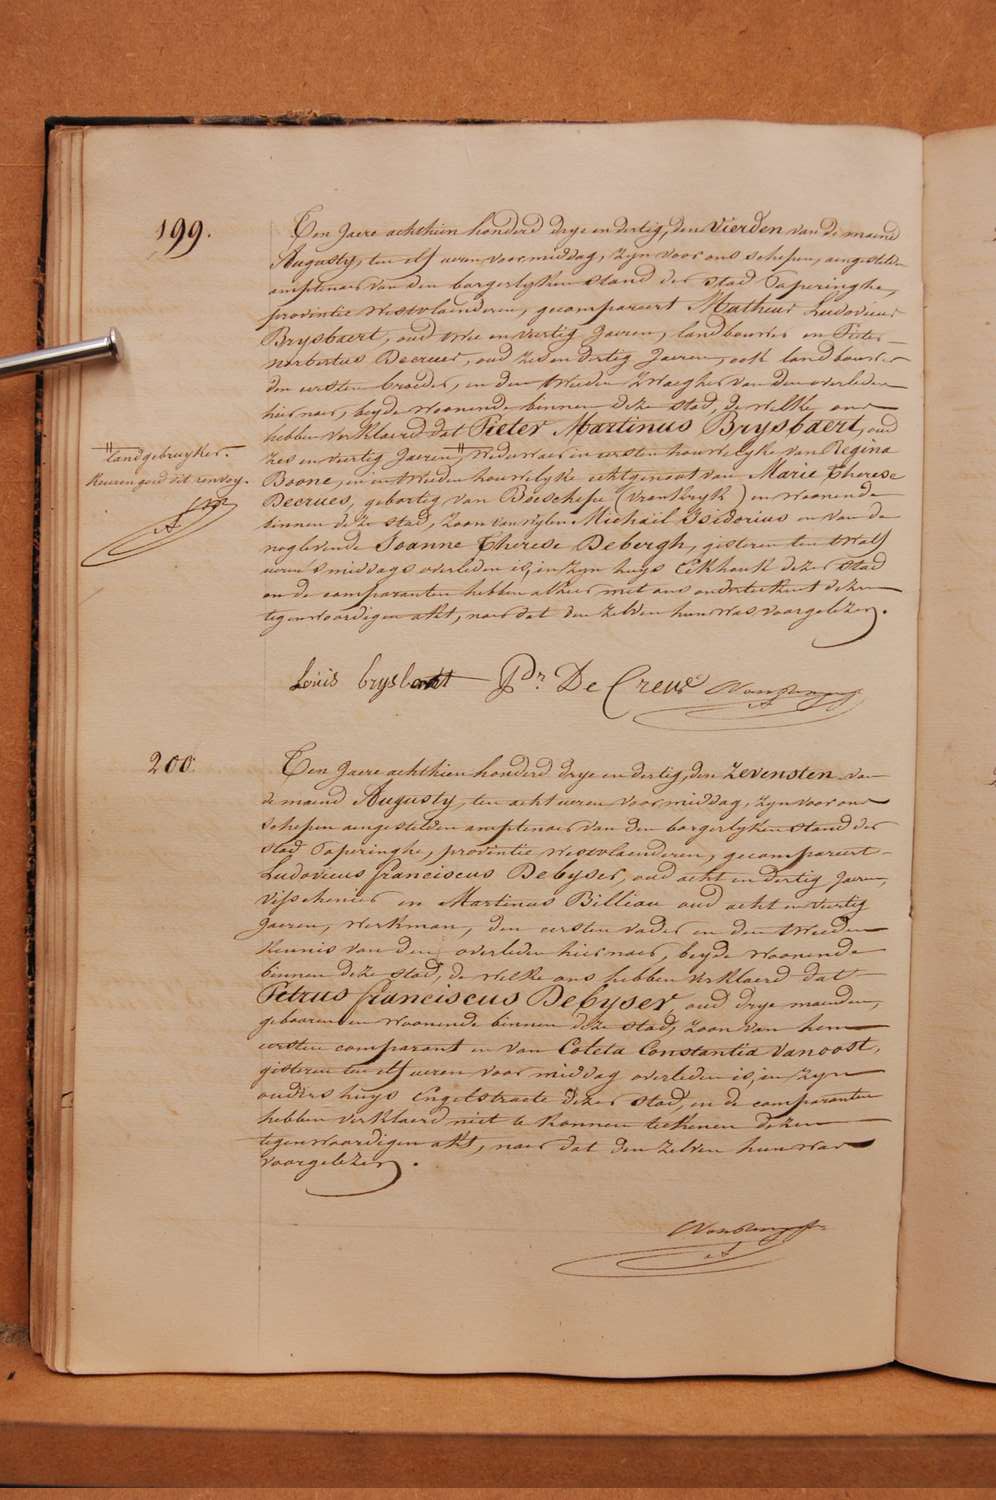 199.
Ten Jaere achthien honderd drye en dertig, den vierden van de maend
Augusty, ten elf ueren voormiddag, zyn voor ons schepen, aengestelden
amptenaer van den borgerlyken stand der stad Poperinghe,
provintie Westvlaenderen, gecompareert Mathieu Ludovicus
Brysbaert, oud twee en viertig Jaeren, landbouwer en Pieter
norbertus Decrues, oud zes en dertig Jaeren, ook landbouwer
den eersten broeder, en den tweeden zwaegher van den overleden
hier naer, beyde woonende binnen deze stad, de welke ons
hebben verklaerd dat Pieter Martinus Brysbaert, oud
zes en viertig Jaeren " weduwaer in eersten houwelyke van Regina
Boone, en in tweeden houwelyke echtgenoot van Marie Therese
Decrues, gebortig van Boeschepe (Vrankryk) en woonende
binnen deze stad, zoon van wylen Michaïl Isidorius en van de
noglevende Joanne Therese Debergh, gisteren ten twalf
ueren smiddags overleden is, in zyn huys Eekhoutk dezer stad
en de comparanten hebben alhier met ons onderteekent dezen
tegenwoordigen akt, naer dat den zelven hun was voorgelezen.
" landgebruyker.
keuren goed dit renvoy.
Louis brysbaert Pdr. De Creus
200
Ten Jaere achthien honderd drye en dertig, den zevensten van
de maend Augusty, ten acht ueren voormiddag, zyn voor ons
schepen aengestelden amptenaer van den borgerlyken stand der
stad Poperinghe, provintie Westvlaenderen, gecompareert
Ludovicus franciscus Debyser, oud acht en dertig Jaeren,
visschenier en Martinus Billiau oud acht en viertig
Jaeren, werkman, den eersten vader en den tweeden
kennis van den overleden hier naer, beyde woonende
binnen deze stad, de welke ons hebben verklaerd dat
Petrus franciscus Debyser, oud drye maenden,
gebooren en woonende binnen deze stad, zoon van hem
eersten comparant en van Coleta Constantia Vanoost,
gisteren ten elf ueren voor middag overleden is, in zyn
ouders huys Engelstraete dezer stad, en de comparanten
hebben verklaerd niet te konnen teekenen dezen
tegenwoordigen akt, naer dat den zelven hun was
voorgelezen.